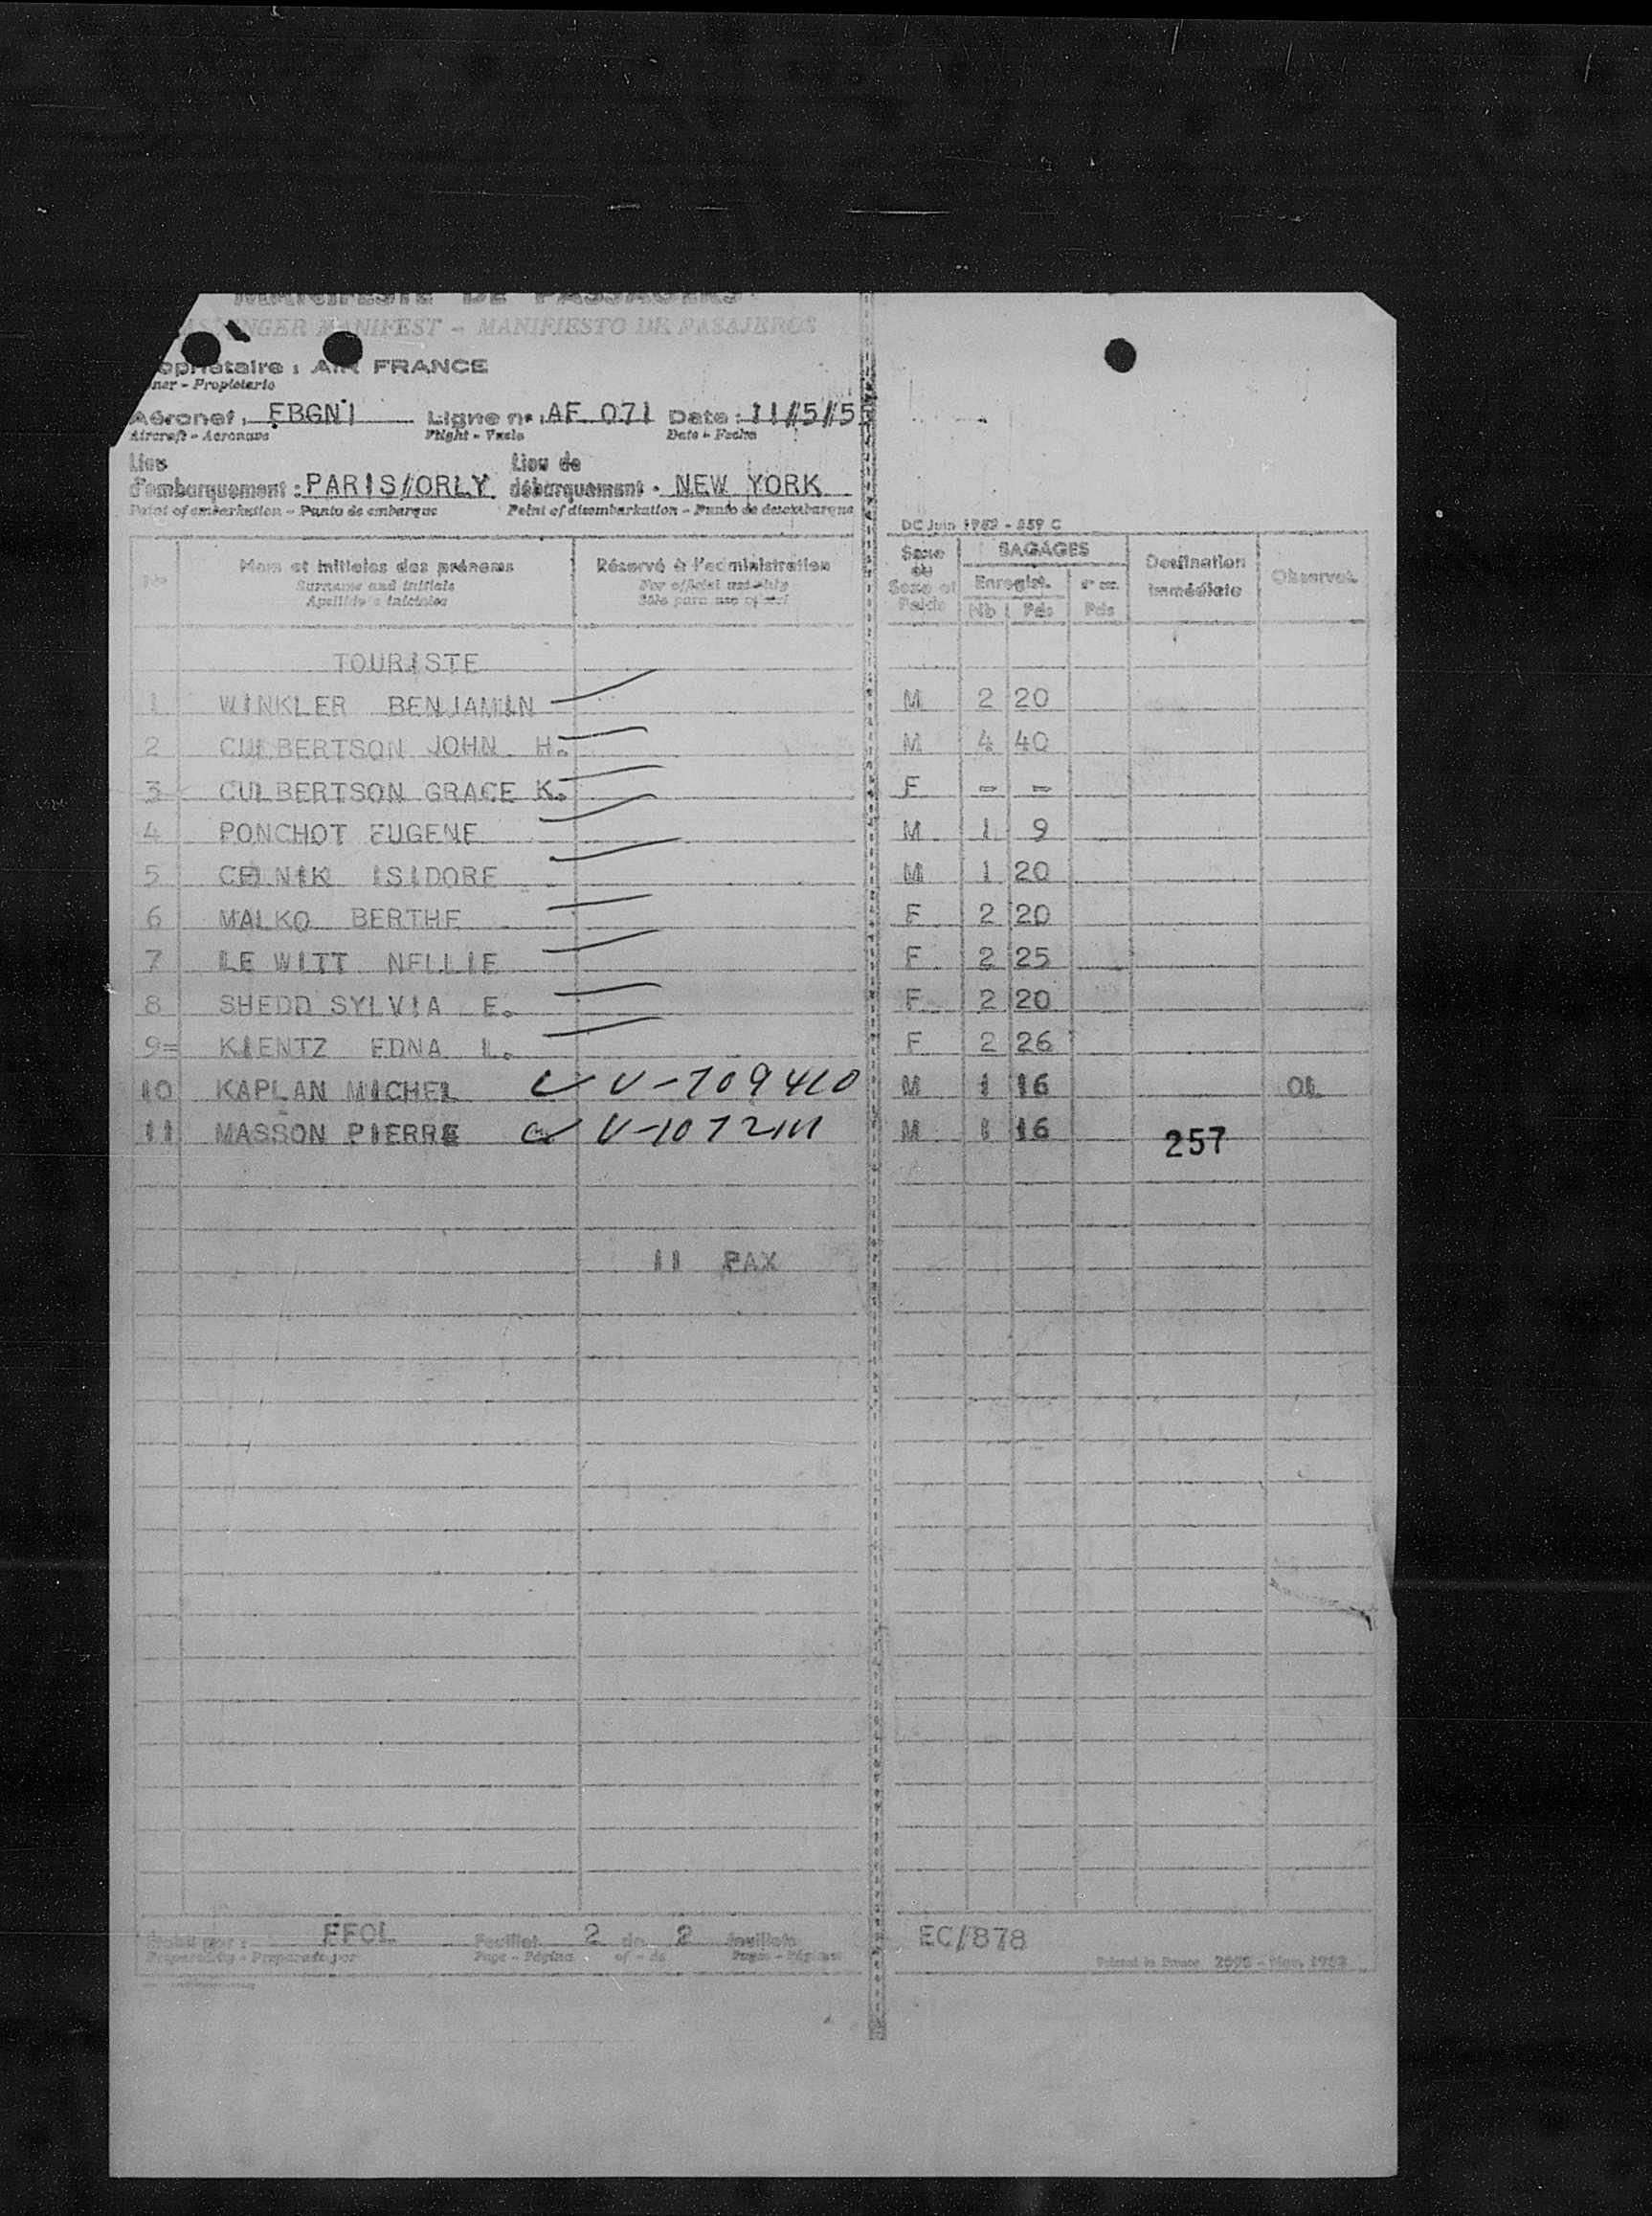 MANIFESTE DE PASSAGERS
PASSENGER MANIFEST - MANIFIESTO DE PASAJEROS
opriétaire : AIR FRANCE
ner - Propietario
Aéronef : FBGNI Ligne nº : AF 071 Date : 11/5/5
Aircraft - Aeronave Flight - Vuelo Date - Fecha
Lieu d'embarquement : PARIS/ORLY Lieu de débarquement - NEW YORK
Point of embarkation - Punto de embarque Point of disembarkation - Punto de desembarque
DC Juin 1952 - 859 C
Nom et initiales des prénoms Réservé à l'administration Sexe ou BAGAGES Destination immédiate Observat.
Surname and initials For official use only Enregist.
Apellido e iniciales Sólo para uso oficial Nb Pds Pds
TOURISTE
1 WINKLER BENJAMIN M 2 20
2 CULBERTSON JOHN H. M 4 40
3 CULBERTSON GRACE K. F - -
4 PONCHOT EUGENE M 1 9
5 CELNIK ISIDORE M 1 20
6 MALKO BERTHE F 2 20
7 LE WITT NELLIE F 2 25
8 SHEDD SYLVIA E. F 2 20
9= KIENTZ EDNA L. F 2 26
10 KAPLAN MICHEL V-709410 M 1 16 OL
11 MASSON PIERRE M 1 16 257
11 PAX
FFOL Feuillet 2 de 2 feuillets EC/878
Page - Página of - de
Printed in France